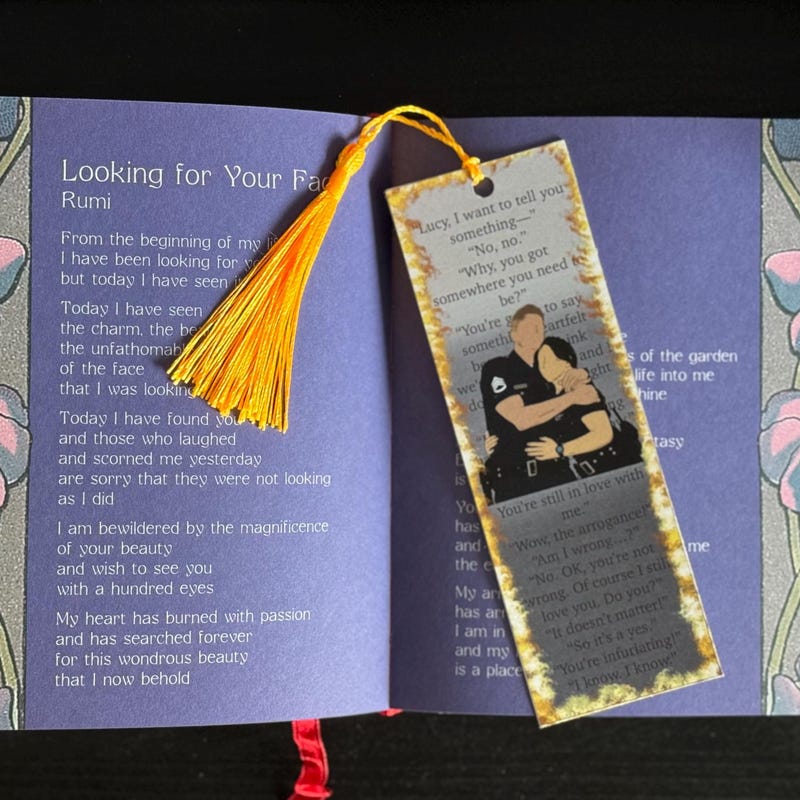 Looking for Your Fac
Rumi
From the beginning of my life
I have been looking for yo
but today I have seen i
Today I have seen
the charm, the be
the unfathomabl
of the face
that I was looking
Today I have found you
and those who laughed
and scorned me yesterday
are sorry that they were not looking
as I did
I am bewildered by the magnificence
of your beauty
and wish to see you
with a hundred eyes
My heart has burned with passion
and has searched forever
for this wondrous beauty
that I now behold
"Lucy, I want to tell you
something—"
"No, no."
"Why, you got
somewhere you need to
be?"
"You're g to say
someth eartfelt
b ink
we' and
do ght
You're still in love with
me."
"Wow, the arrogance!"
"Am I wrong...?"
"No. OK, you're not
wrong. Of course I still
love you. Do you?"
"It doesn't matter!"
"So it's a yes."
"You're infuriating!"
"I know. I know."
s of the garden
life into me
hine
tasy
is
Yo
has
and me
the e
My ar
has arr
I am in
and my
is a place